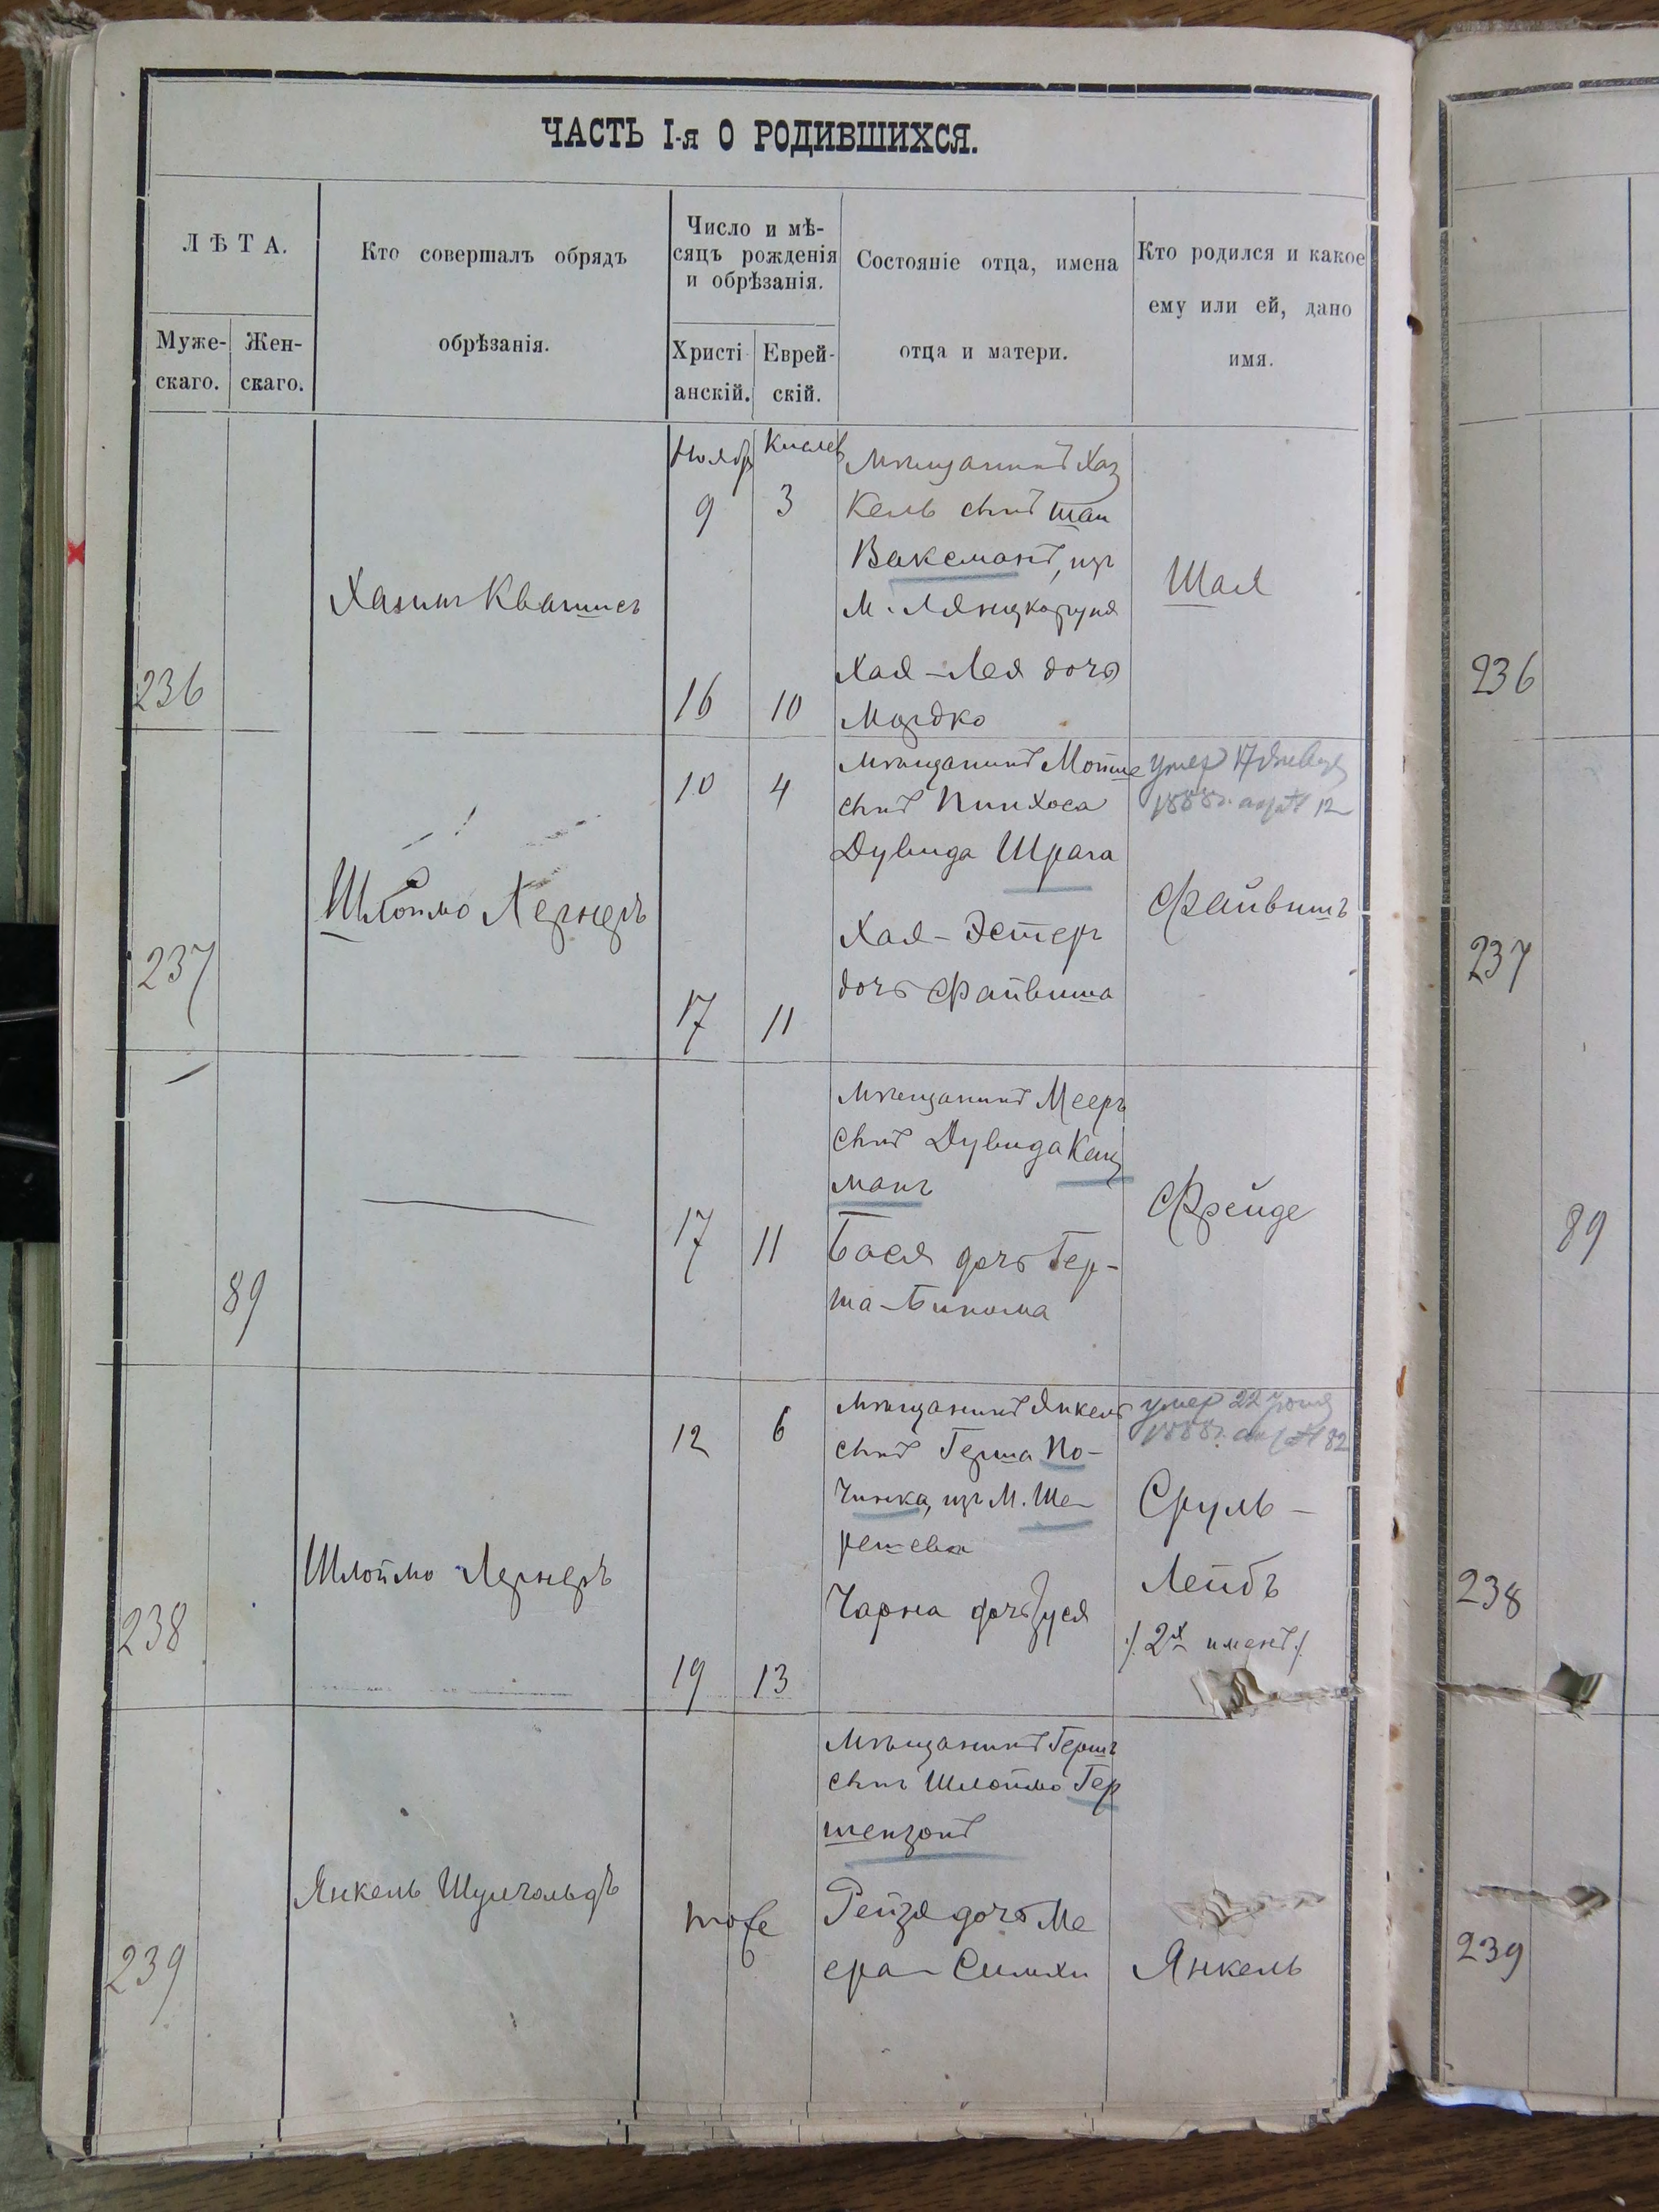 ЧАСТЬ I-я О РОДИВШИХСЯ.
ЛѢТА.
Муже-
скаго.
Жен-
скаго.
Кто совершалъ обрядъ
обрѣзанія.
Число и мѣ-
сяцъ рожденія
и обрѣзанія.
Христі
анскій.
Еврей-
скій.
Состояніе отца, имена
отца и матери.
Кто родился и какое
ему или ей, дано
имя.
236
Ноябр
9
16
Кислев
3
10
Мѣщанинъ Хаз
кель сынъ Шаи
Ваксманъ, изъ
М.
Хая-Лея дочь
Мордко
Шая
236
237
Шлоймо Лернеръ
10
17
4
11
Мѣщанинъ Мотше
сынъ Пинхоса
Дувида Шрага
Хая-Эстеръ
дочь Файвиша
умер 17 Январ
1888г. 12
Файвишъ
237
89
17
11
Мѣщанинъ Мееръ
сынъ Дувида Кац
манъ
Бася дочь Гер-
ша-Бинома
Фрейде
89
238
Шлоймо Лернеръ
12
19
6
13
Мѣщанинъ Янкель
сынъ Герша По-
чинка, изъ М. Ше-
решева
Чарна дочь Зуся
умер 22
1888г. 82
Сруль-
Лейбъ
/. 2х именъ ./
238
239
Янкель
тоже
Мѣщанинъ Гершъ
сынъ Шлоймо Гер
шензонъ
Рейзя дочь Ме
ера-Симхи
Янкель
239